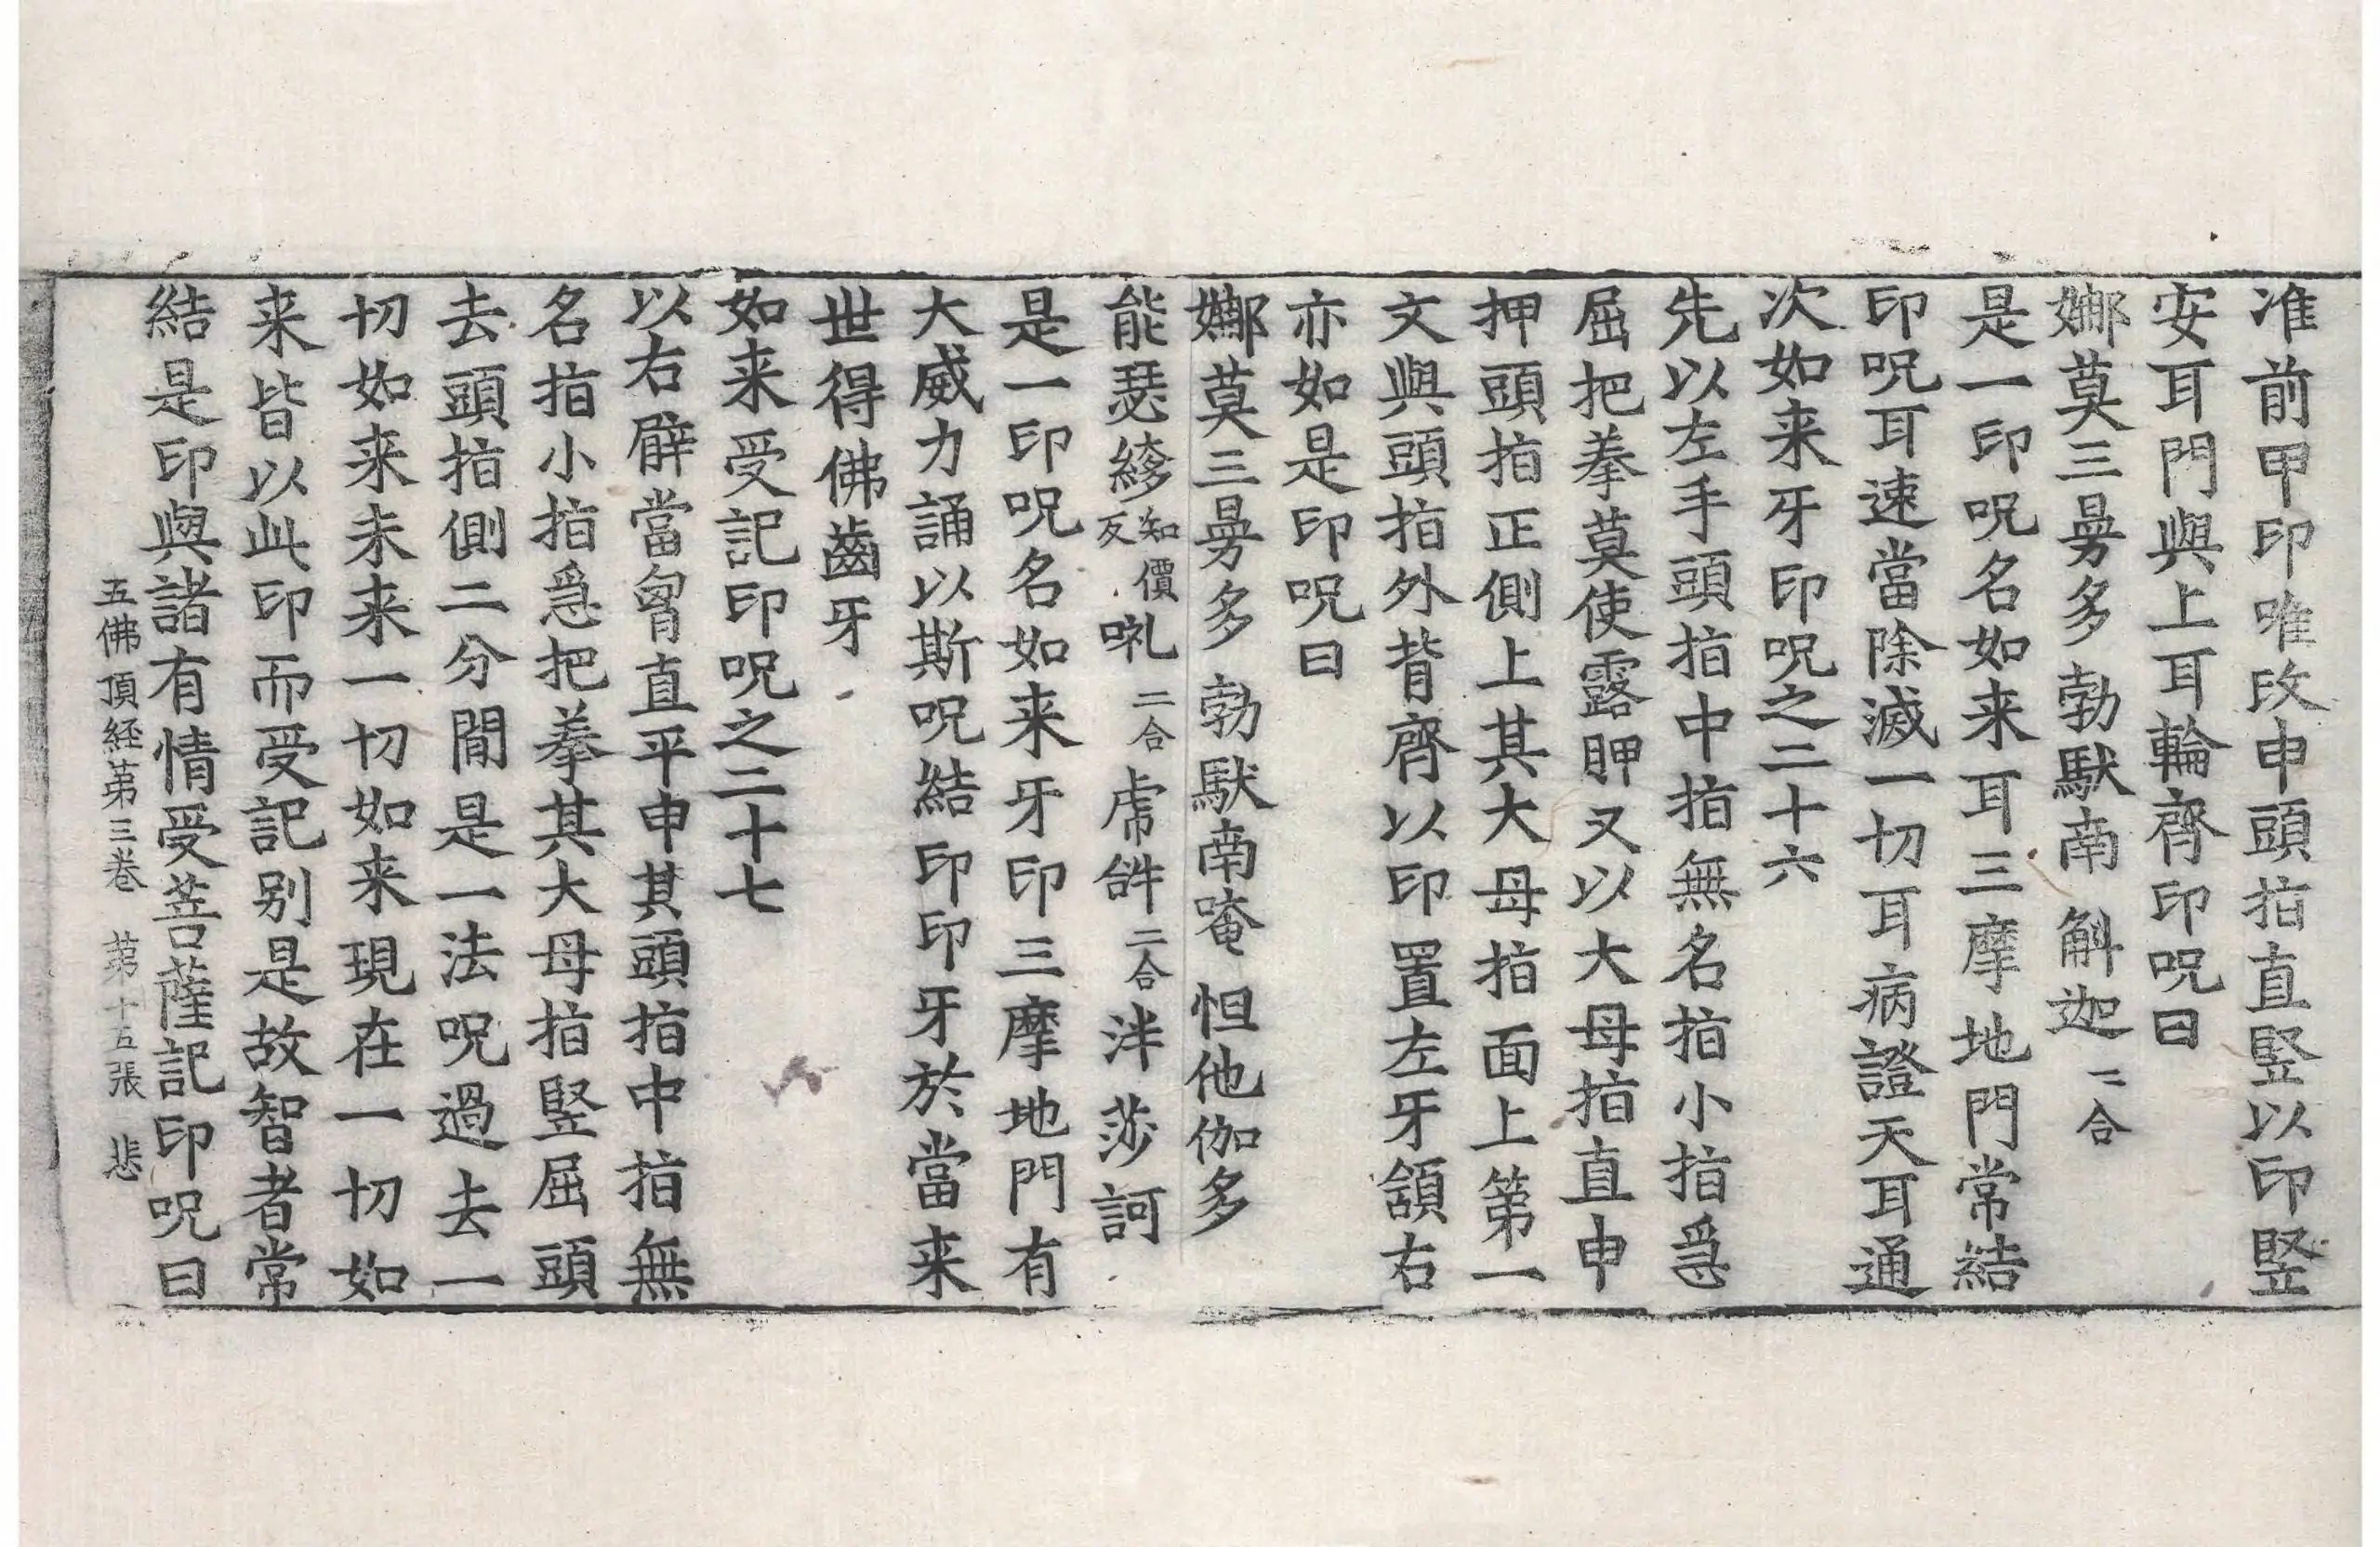 准前甲印唯改申頭指直竪以印竪
安耳門與上耳輪齊印呪曰
娜莫三曼多勃馱南斛迦二合
是一印呪名如来耳三摩地門常結
印呪耳速當除滅一切耳病證天耳通
次如来牙印呪之二十六
先以左手頭指中指無名指小指急
屈把拳莫使露胛又以大母指直申
押頭指正側上其大母指面上第一
文與頭指外背齊以印置左牙頷右
亦如是印呪曰
娜莫三曼多勃馱南唵怛他伽多
能瑟縿知價反㘑二合虖𤙖二合泮莎訶
是一印呪名如来牙印三摩地門有
大威力誦以斯呪結印印牙於當来
世得佛齒牙
如来受記印呪之二十七
以右臂當胷直平申其頭指中指無
名指小指急把拳其大母指竪屈頭
去頭指側二分間是一法呪過去一
切如来未来一切如来現在一切如
来皆以此印而受記别是故智者常
結是印與諸有情受菩薩記印呪曰
五佛頂経苐三卷 苐十五張 悲